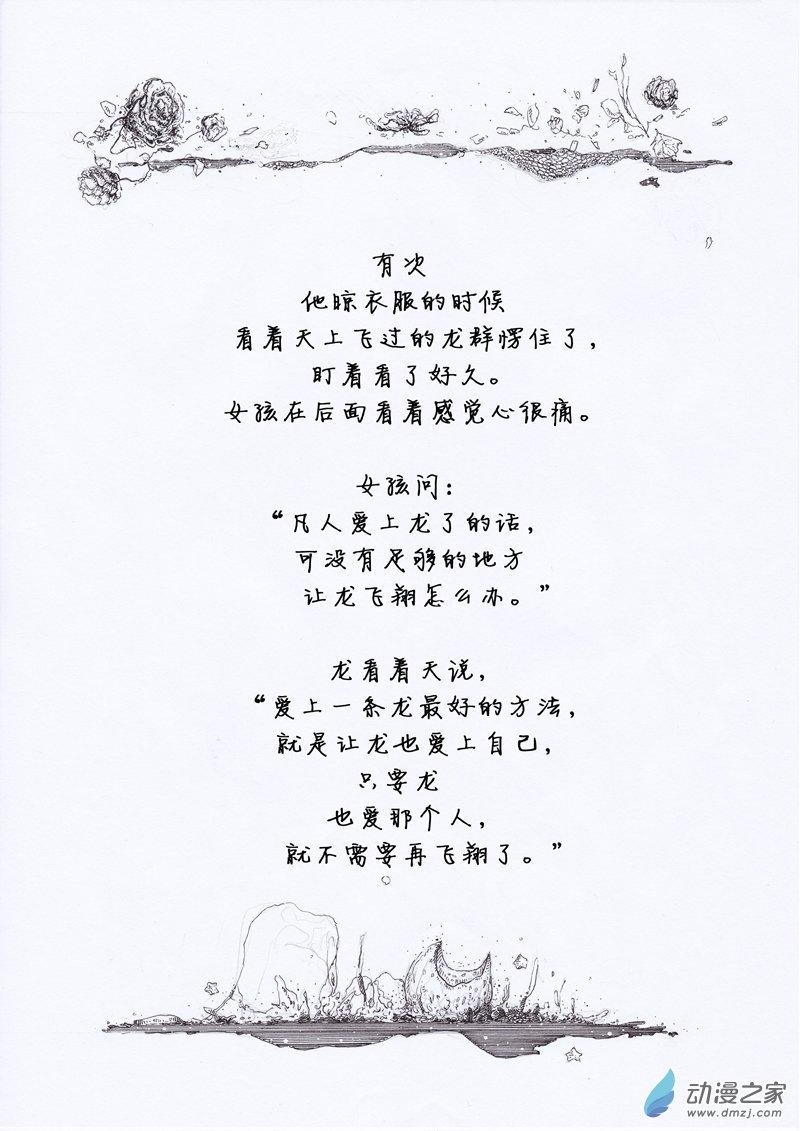 有次
他晾衣服的时候
看着天上飞过的龙群愣住了，
盯着看了好久。
女孩在后面看着感觉心很痛。
女孩问：
“凡人爱上龙了的话，
可没有足够的地方
让龙飞翔怎么办。”
龙看着天说，
“爱上一条龙最好的方法，
就是让龙也爱上自己，
只要龙
也爱那个人，
就不需要再飞翔了。”
动漫之家
www.dmzj.com